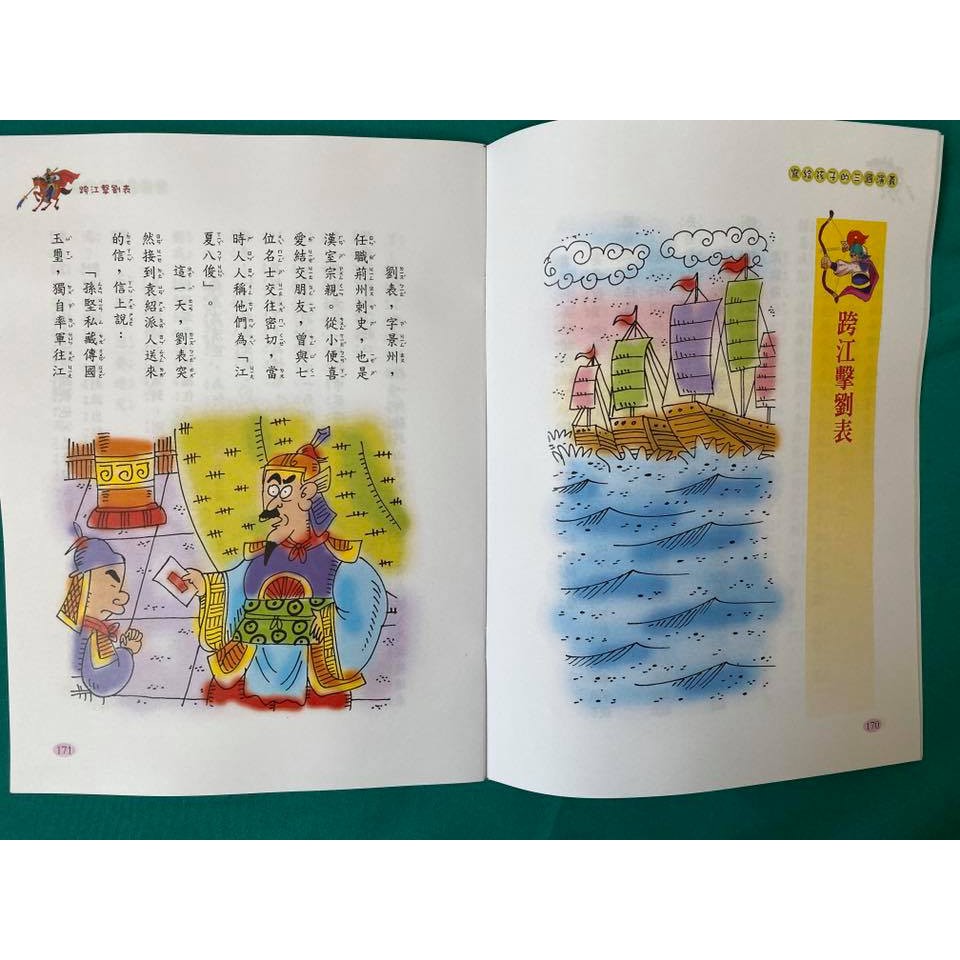 寫給孩子的三國演義
跨江擊劉表
170
跨江擊劉表
劉表，字景州，
任職荊州刺史，也是
漢室宗親。從小便喜
愛結交朋友，曾與七
位名士交往密切，當
時人人稱他們為「江
夏八俊」。
這一天，劉表突
然接到袁紹派人送來
的信，信上說：
「孫堅私藏傳國
玉璽，獨自率軍往江
171